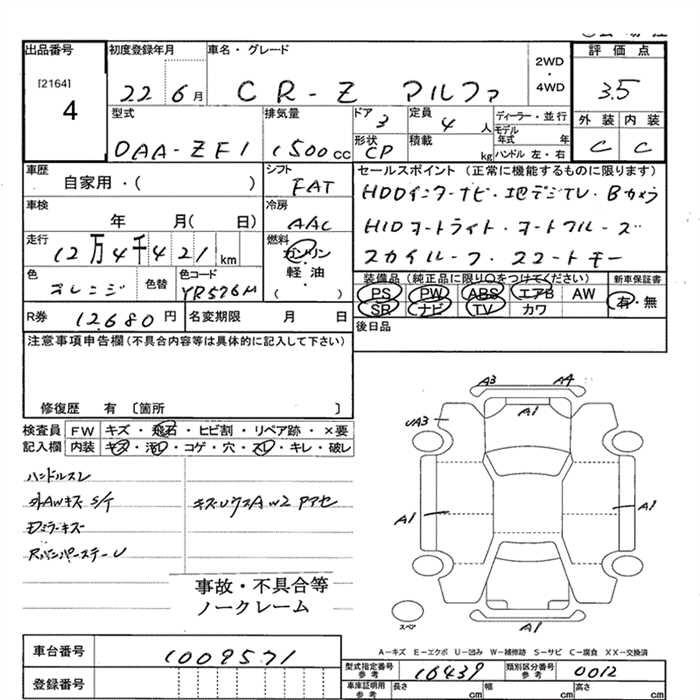 出品番号
[2164]
4
初度登録年月
22 6月
車名・グレード
CR-Z アルファ
2WD
・
4WD
評価点
3.5
外装 内装
C C
型式
DAA-ZF1
排気量
1500cc
ドア 3
形状
CP
定員
4 人
積載
kg
ディーラー・並行
モデル
年式 年
ハンドル 左・右
車歴
自家用・( )
シフト
FAT
セールスポイント (正常に機能するものに限ります)
HDDインターナビ・地デジTV・Bカメラ
HIDオートライト・オートクルーズ
スカイルーフ・スマートキー
車検
年 月( 日)
冷房
AAC
走行
12万4千421km
燃料
ガソリン
・
軽油
( ・ )
色
オレンジ
色替
色コード
YR576M
装備品 (純正品に限り○をつけてください)
PS PW ABS エアB AW
SR ナビ TV カワ
新車保証書
有・無
R券 12680円
名変期限 月 日
後日品
注意事項申告欄(不具合内容等は具体的に記入して下さい)
修復歴 有 〔箇所 〕
検査員 FW キズ・飛石・ヒビ割・リペア跡・×要
記入欄 内装 キズ・汚レ・コゲ・穴・スレ・キレ・破レ
ハンドルスレ
外AWキズ S/T
ドミラーキズ
RバンパーステーU
キズUクスA W2 Pアセ
事故・不具合等
ノークレーム
A3 A4
A1
UA3
A1
A1
A1
スペア
A-キズ E-エクボ U-凹み W-補修跡 S-サビ C-腐食 XX-交換済
車台番号
1009571
登録番号
型式指定番号
参考
16439
類別区分番号
参考
0012
車庫証明用
参考
長さ cm
幅 cm
高さ cm